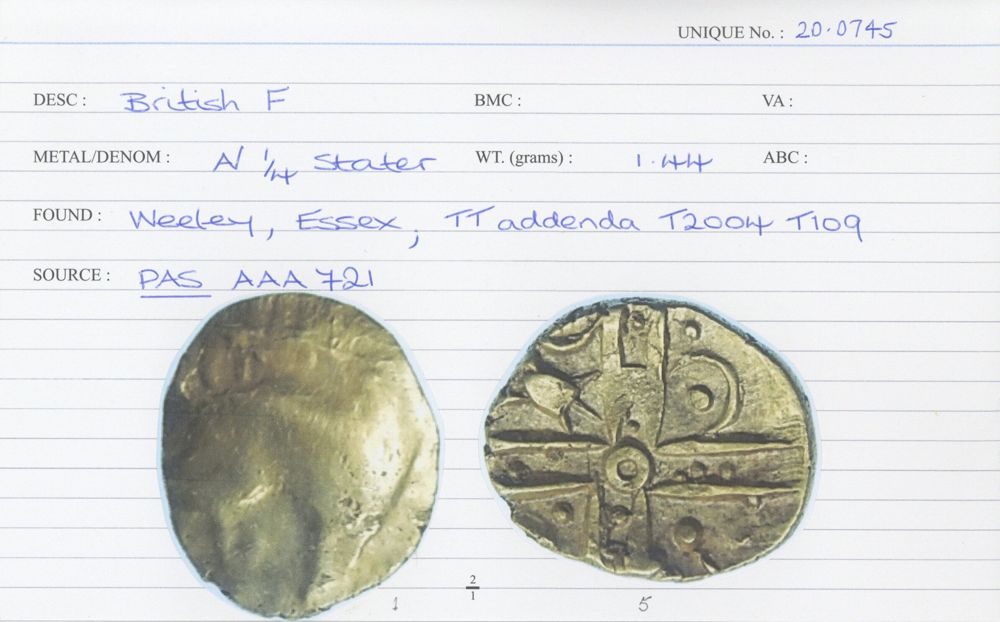 UNIQUE No. : 20.0745
DESC : British F BMC : VA :
METAL/DENOM : A/ 1/4 Stater WT. (grams) : 1.44 ABC :
FOUND : Weeley, Essex, TT addenda T2004 T109
SOURCE : PAS AAA 721
2/1
1 5